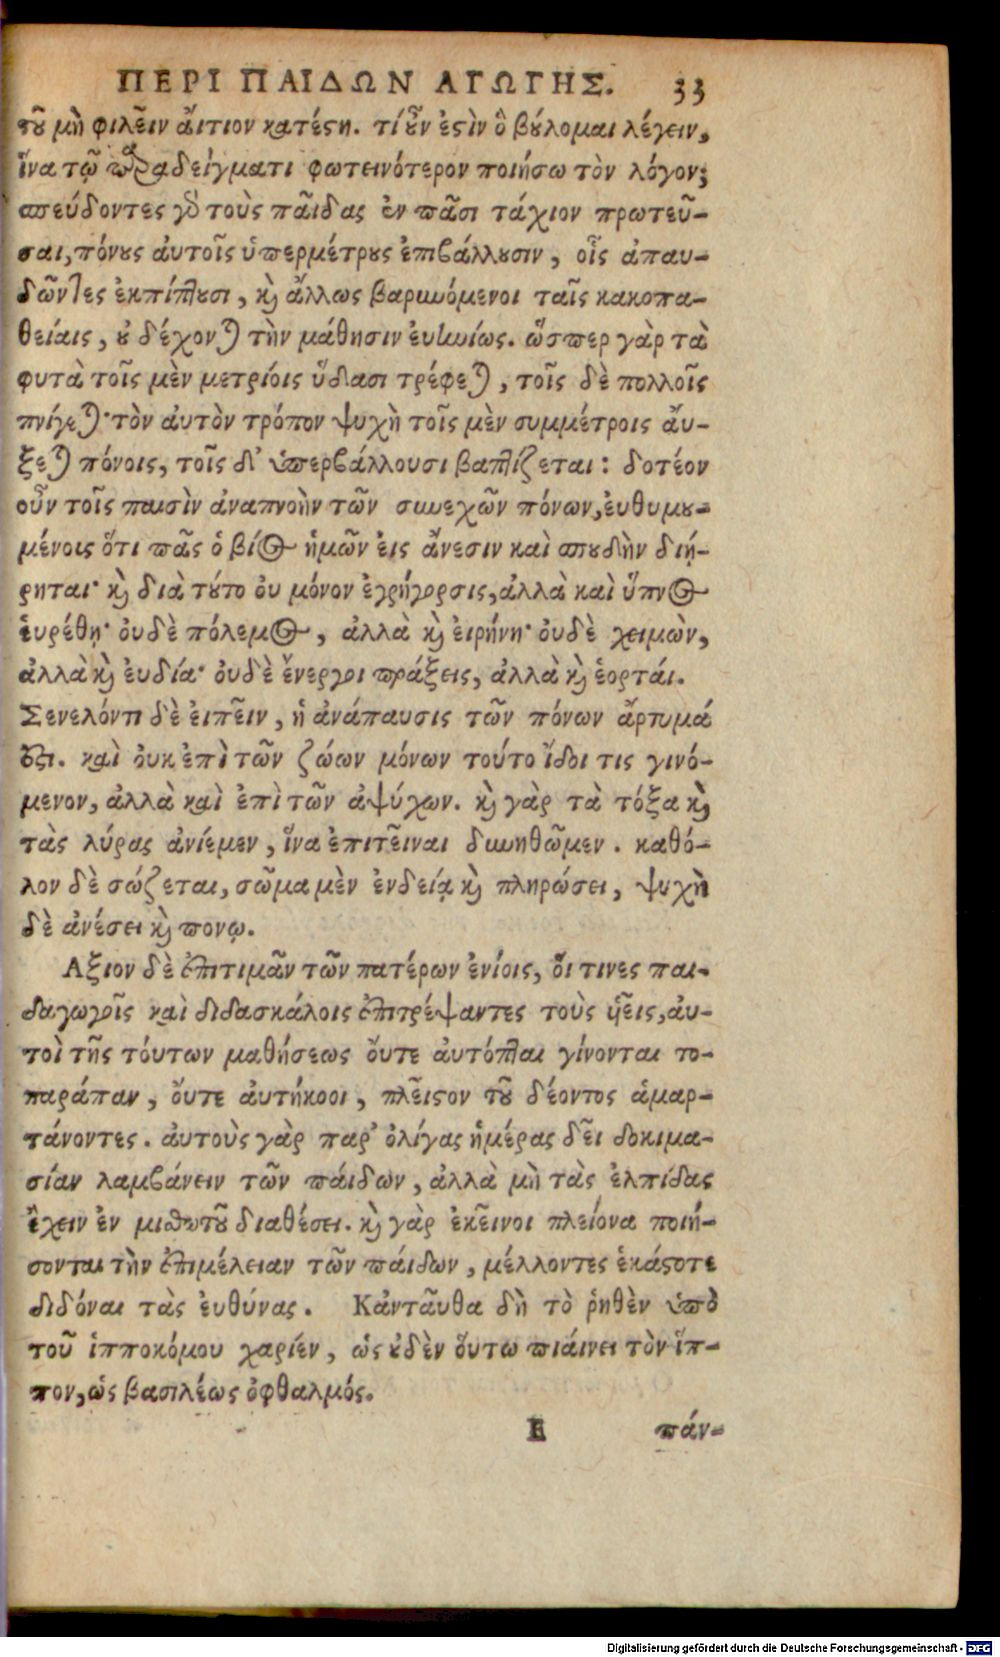 ΠΕΡΙ ΠΑΙΔΩΝ ΑΓΩΓΗΣ. 33
τȣ͂ μὴ φιλεῖν ἄιτιον κατέϛη. τί ȣ̓͂ν ἐϛὶν ὃ βȣ́λομαι λέγειν,
ἵνα τῷ παραδείγματι φωτεινότερον ποιήσω τὸν λόγον;
σπεύδοντες γὸ τοὺς παῖδας ἐν πᾶσι τάχιον πρωτεῦ-
σαι, πόνȣς ἀυτοῖς ὑπερμέτρȣς ἐπιβάλλȣσιν, οἷς ἀπαυ-
δῶντες ἐκπίπτȣσι, κὶ ἄλλως βαρυνόμενοι ταῖς κακοπα-
θείαις, ȣ̓ δέχονται τὴν μάθησιν ἐυηνίως. ὥσπερ γὰρ τὰ
φυτὰ τοῖς μὲν μετρίοις ὕδασι τρέφεται, τοῖς δὲ πολλοῖς
πνίγεται· τὸν ἀυτὸν τρόπον ψυχὴ τοῖς μὲν συμμέτροις ἄυ-
ξεται πόνοις, τοῖς δ' ὑπερβάλλουσι βαπτίζεται: δοτέον
οὖν τοῖς παισὶν ἀναπνοὴν τῶν συνεχῶν πόνων, ἐνθυμȣ-
μένοις ὅτι πᾶς ὁ βίος ἡμῶν ἐις ἄνεσιν καὶ σπȣδὴν διῄ-
ρηται· κὶ διὰ τȣ́το ὀυ μόνον ἐγρήγορσις, ἀλλὰ καὶ ὕπνος
ἑυρέθη· ὀυδὲ πόλεμος, ἀλλὰ κὶ ἐιρήνη· ὀυδὲ χειμὼν,
ἀλλὰ κὶ ἐυδία· ὀυδὲ ἔνεργοι πράξεις, ἀλλὰ κὶ ἑορτάι.
Σενελόντι δὲ ἐιπεῖν, ἡ ἀνάπαυσις τῶν πόνων ἄρτυμά
ἐϛι. καὶ ὀυκ ἐπὶ τῶν ζώων μόνων τούτο ἴδοι τις γινό-
μενον, ἀλλὰ καὶ ἐπὶ τῶν ἀψύχων. κὶ γὰρ τὰ τόξα κὶ
τὰς λύρας ἀνίεμεν, ἵνα ἐπιτεῖναι δυνηθῶμεν. καθό-
λον δὲ σώζεται, σῶμα μὲν ἐνδείᾳ κὶ πληρώσει, ψυχὴ
δὲ ἀνέσει κὶ πονῳ.
Αξιον δὲ ἐπιτιμᾶν τῶν πατέρων ἐνίοις, ὅι τινες παι-
δαγωγοῖς καὶ διδασκάλοις ἐπιτρέψαντες τοὺς ὑεῖς, ἀυ-
τοὶ τῆς τόυτων μαθήσεως ὄυτε ἀυτόπται γίνονται το-
παράπαν, ὄυτε ἀυτήκοοι, πλεῖϛον τȣ͂ δέοντος ἁμαρ-
τάνοντες. ἀυτοὺς γὰρ παρ' ὀλίγας ἡμέρας δεῖ δοκιμα-
σίαν λαμβάνειν τῶν πάιδων, ἀλλὰ μὴ τὰς ἐλπίδας
ἔχειν ἐν μιθωτȣ͂ διαθέσει. κὶ γὰρ ἐκεῖνοι πλείονα ποιή-
σονται τὴν ἐπιμέλειαν τῶν πάιδων, μέλλοντες ἑκάϛοτε
διδόναι τὰς ἐυθύνας. Κἀντᾶυθα δὴ τὸ ῥηθὲν ὑπὸ
τοῦ ἱπποκόμου χαρίεν, ὡς ȣ̓δὲν ὅυτω πιάινει τὸν ἵπ-
πον, ὡς βασιλέως ὀφθαλμός.
E πάν-
Digitalisierung gefördert durch die Deutsche Forschungsgemeinschaft - DFG